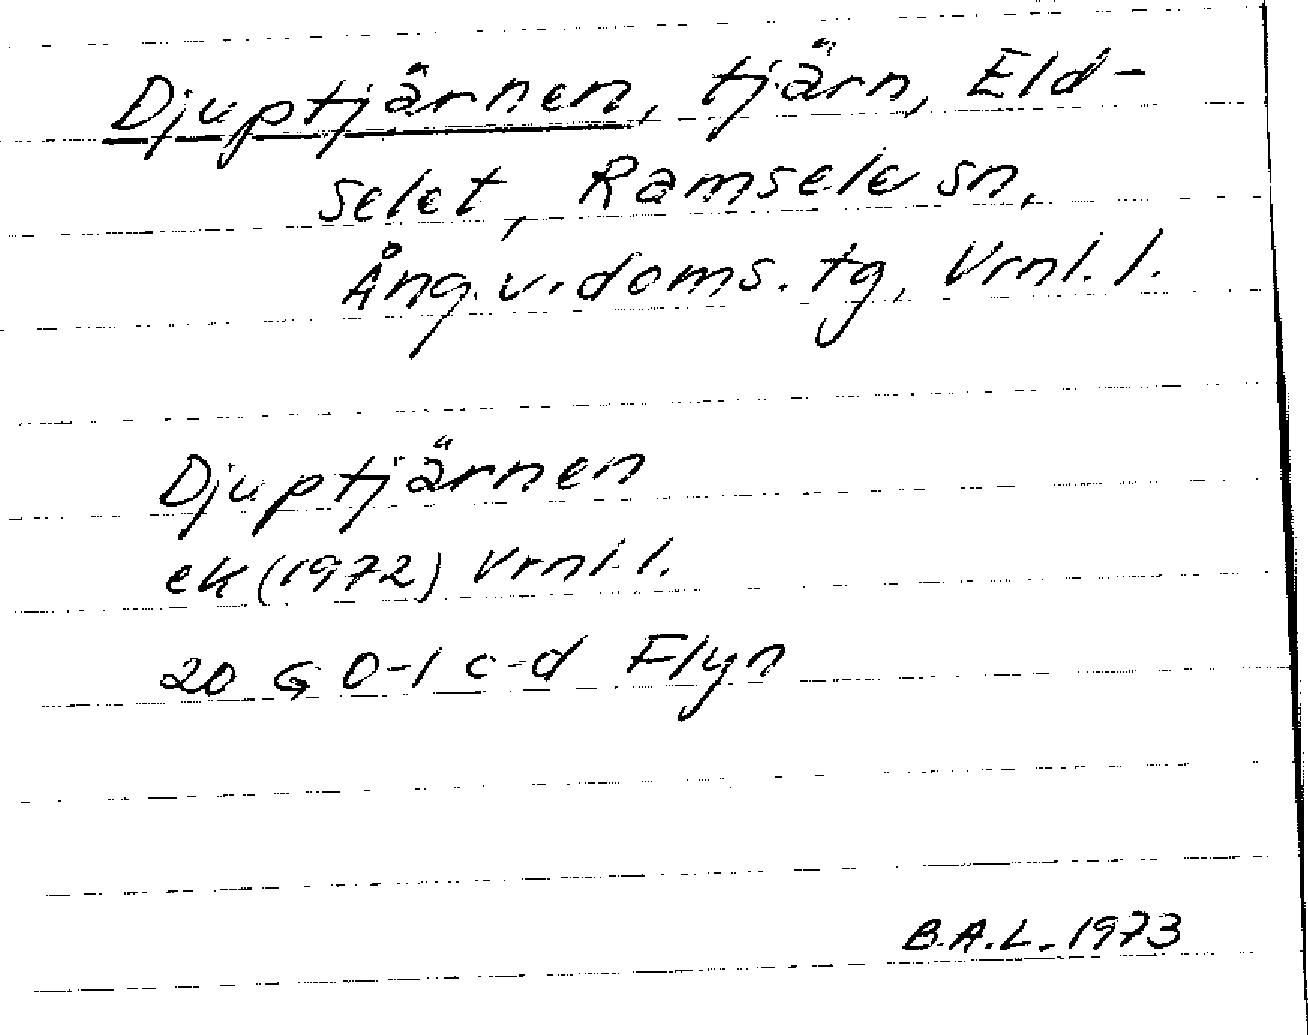 Djuptjärnen, tjärn, Eld-
selet, Ramsele sn,
Ång.v.doms.tg, Vrnl.l.
Djuptjärnen
ek (1972) Vrnl.l.
20 G 0-1 c-d Flyn
B.A.L. 1973